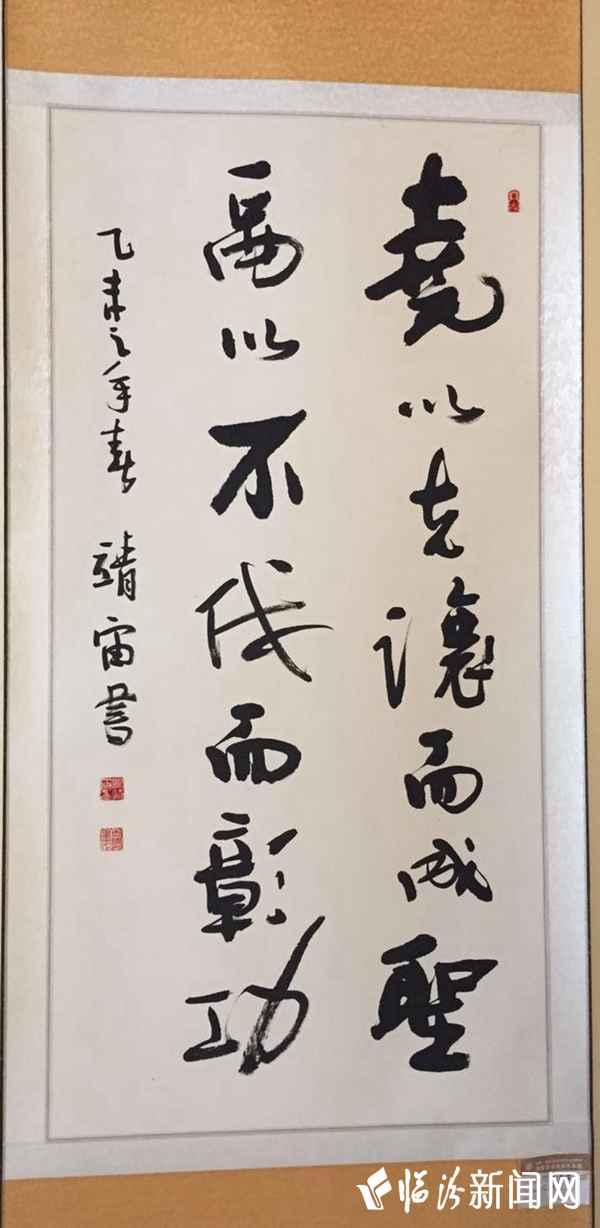 堯以克讓而成聖
禹以不伐而彰功
乙未之年春 靖宙書
临汾新闻网